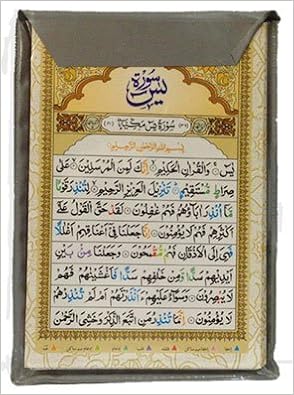 سورة يس
سورة يس مكية
بسم الله الرحمن الرحيم
يس ۝ والقرآن الحكيم ۝ إنك لمن المرسلين ۝ على
صراط مستقيم ۝ تنزيل العزيز الرحيم ۝ لتنذر قوما
ما أنذر آباؤهم فهم غفلون ۝ لقد حق القول على
أكثرهم فهم لا يؤمنون ۝ إنا جعلنا في أعناقهم أغللا
فهي إلى الأذقان فهم مقمحون ۝ وجعلنا من بين
أيديهم سدا ومن خلفهم سدا فأغشينهم فهم
لا يبصرون ۝ وسواء عليهم ءأنذرتهم أم لم تنذرهم
لا يؤمنون ۝ إنما تنذر من اتبع الذكر وخشي الرحمن